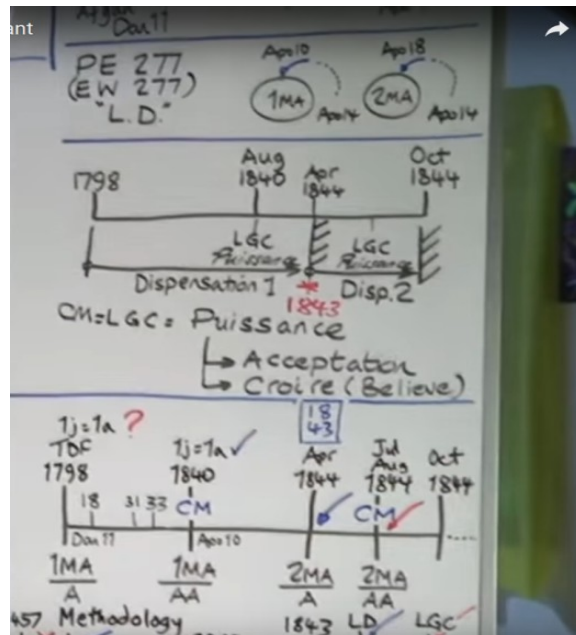 ant
Dan 11
PE 277
(EW 277)
"L.D."
Apo10
1MA
Apo14
Apo18
2MA
Apo14
1798
Aug
1840
Apr
1844
Oct
1844
LGC
Puissance
LGC
Puissance
Dispensation 1
*
1843
Disp.2
CM=LGC= Puissance
Acceptation
Croire (Believe)
18
43
1j=1a ?
TDF
1798
1j=1a ✓
1840
Apr
1844
Jul
Aug
1844
Oct
1844
18
31 33
CM
CM
Dan 11
Apo10
1MA
A
1MA
AA
2MA
A
2MA
AA
457 Methodology
1843
LD
LGC